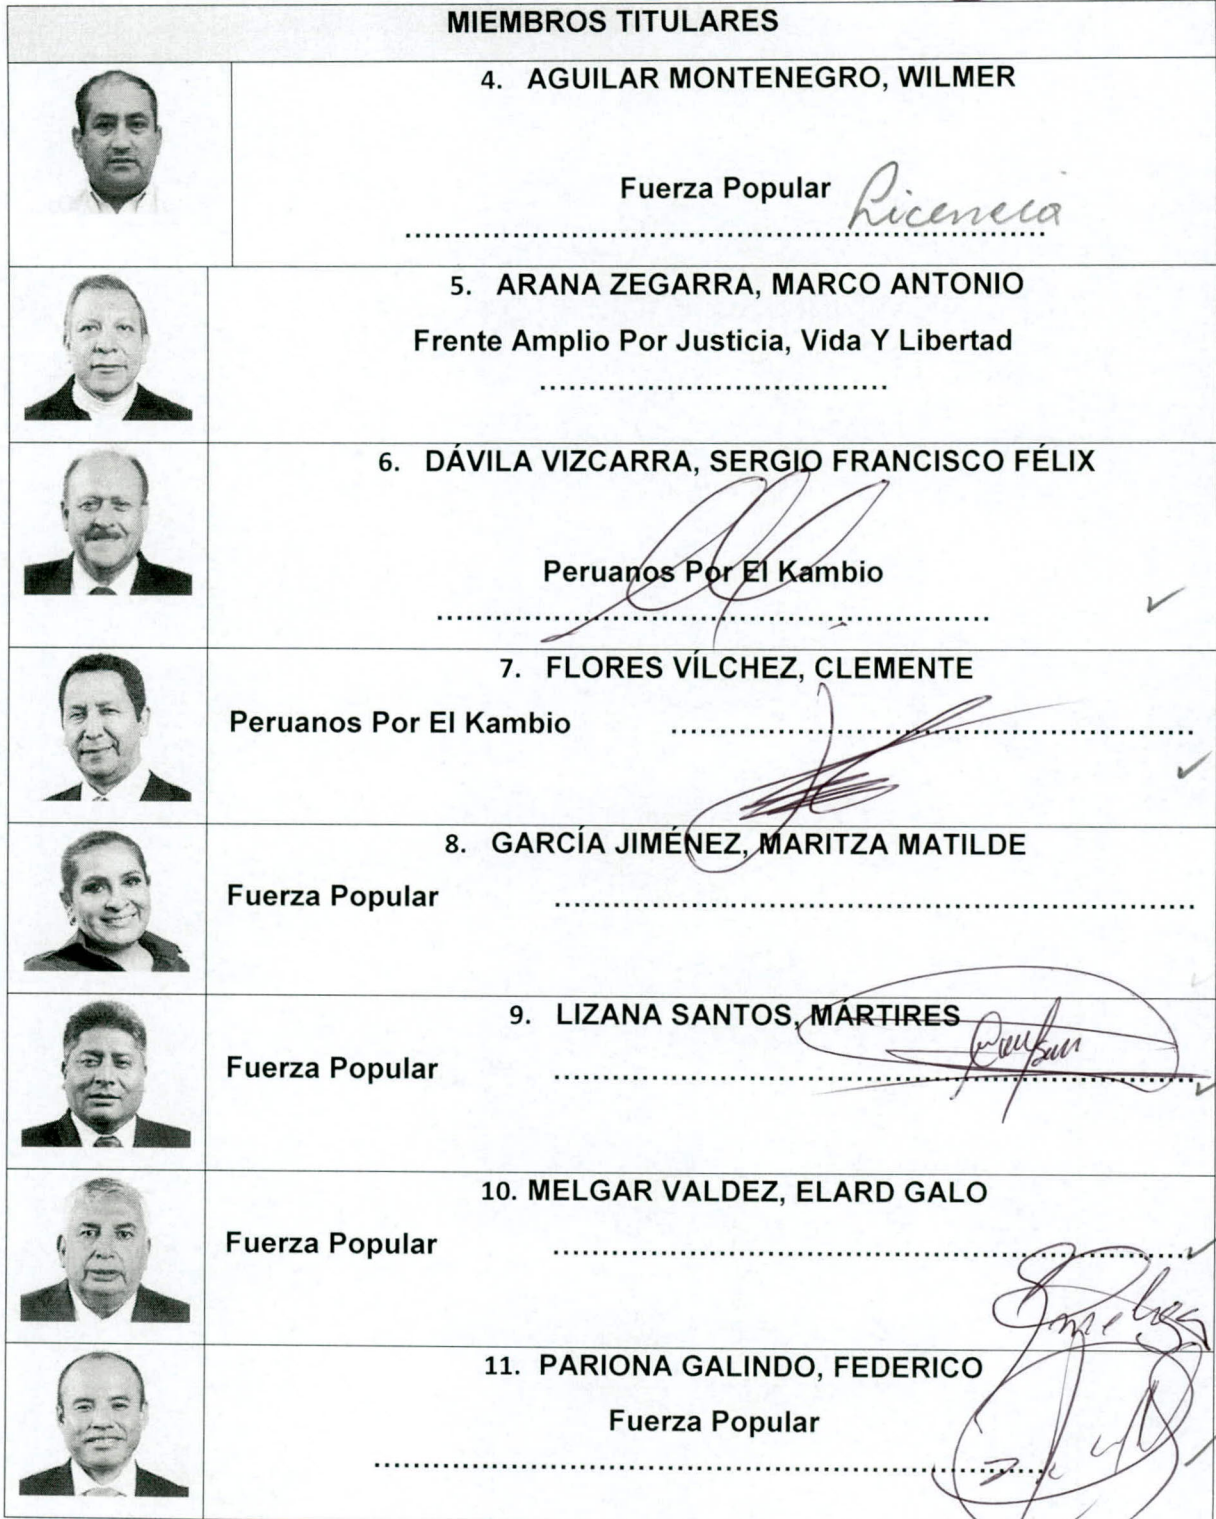 MIEMBROS TITULARES
4. AGUILAR MONTENEGRO, WILMER
Fuerza Popular Licencia
5. ARANA ZEGARRA, MARCO ANTONIO
Frente Amplio Por Justicia, Vida Y Libertad
6. DÁVILA VIZCARRA, SERGIO FRANCISCO FÉLIX
Peruanos Por El Kambio
7. FLORES VÍLCHEZ, CLEMENTE
Peruanos Por El Kambio
8. GARCÍA JIMÉNEZ, MARITZA MATILDE
Fuerza Popular
9. LIZANA SANTOS, MÁRTIRES
Fuerza Popular
10. MELGAR VALDEZ, ELARD GALO
Fuerza Popular
11. PARIONA GALINDO, FEDERICO
Fuerza Popular